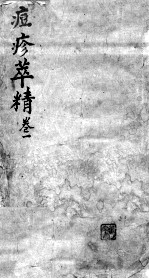 痘疹萃精卷一